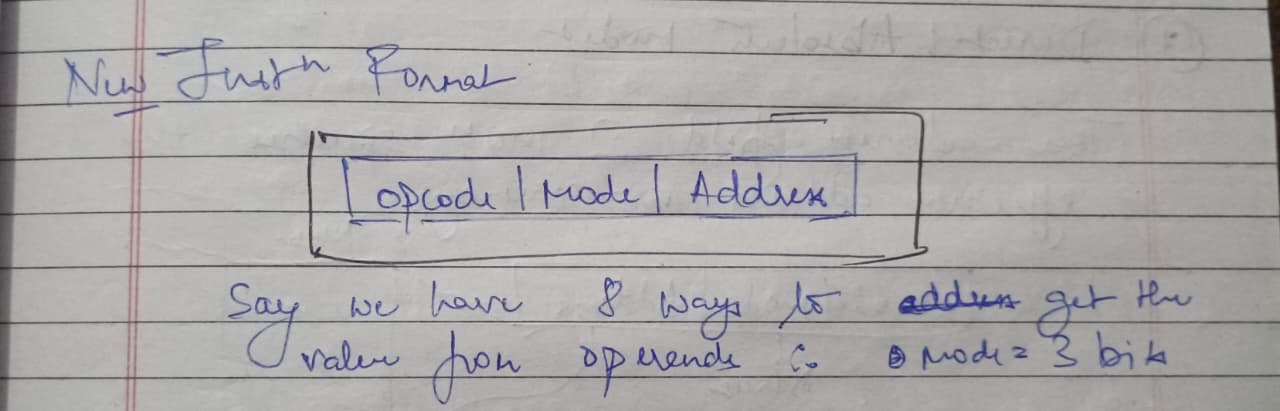 New Instn Format
Opcode | Mode | Address
Say we have 8 ways to get the
value from operends So Mode = 3 bits